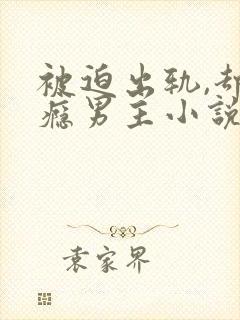 被迫出轨,却
瘾男主小說
袁家界